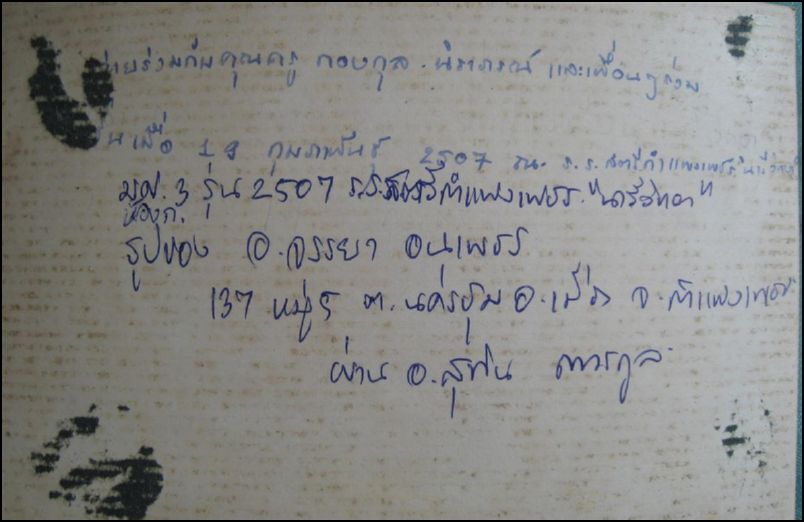 ถ่ายร่วมกับคุณครู กองกุล นิราภรณ์ และเพื่อนๆร่วม
เมื่อ 19 กุมภาพันธ์ 2507 ณ. ร.ร.สตรีกำแพงเพชร
ม.ศ. 3 รุ่น 2507 ร.ร.สตรีกำแพงเพชร "นารีวิทยา"
ห้อง ก.
รูปของ อ.จรรยา อนุเพชร
137 หมู่ 5 ต.นครชุม อ.เมือง จ.กำแพงเพชร
ผ่าน อ.สุพัน